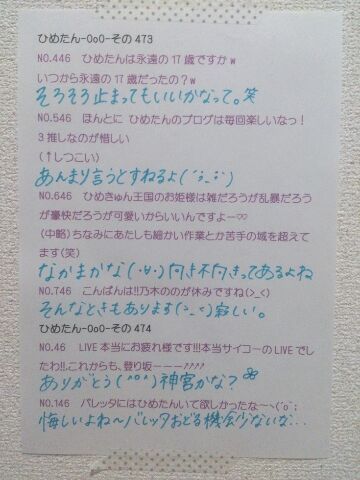 ひめたん-OoO-その473
NO.446　ひめたんは永遠の17歳ですかw
いつから永遠の17歳だったの？w
そろそろ止まってもいいかなって。笑
NO.546　ほんとに ひめたんのブログは毎回楽しいなっ！
3推しなのが惜しい
(↑しつこい)
あんまり言うとすねるよ(´ε`)
NO.646　ひめきゅん王国のお姫様は雑だろうが乱暴だろう
が豪快だろうが可愛いからいいんですよー♡♡
(中略)ちなみにあたしも細かい作業とか苦手の域を超えて
ます(笑)
なかまかな(･∀･)向き不向きってあるよね
NO.746　こんばんは!!乃木ののが休みですね(>_<)
そんなときもあります(>_<)寂しい。
ひめたん-OoO-その474
NO.46　LIVE本当にお疲れ様です!!!本当サイコーのLIVEでし
たわ!!これからも、登り坂ーーーｱｱｱｱ
ありがとう(^o^)神宮かな？
NO.146　バレッタにはひめたんいて欲しかったな〜ヽ(´o`;
悔しいよね〜バレッタおどる機会少ないな...